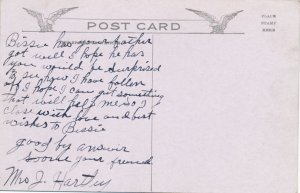 POST CARD
PLACE
STAMP
HERE
Bissie has your father
got well I hope he has
you would be surprised
to see how I have fallen
of I hope I can get something
that will help me so I
close with love and best
wishes to Bissie
good by answer
soon your friend
Mrs J. Hartley